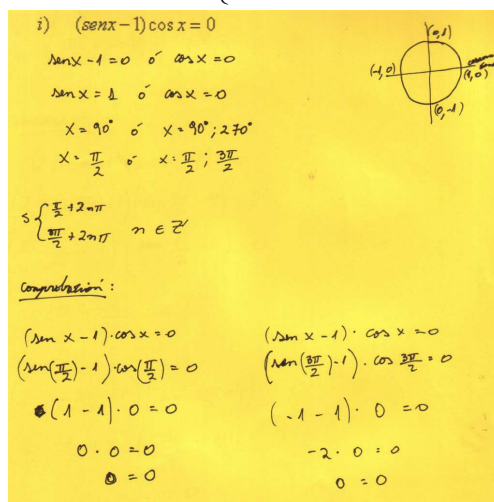 i) (senx−1)cos x = 0
(0,1)
(-1,0)
(1,0)
(0,-1)
sen x -1=0 ó cos x=0
sen x = 1 ó cos x=0
x=90° ó x=90°; 270°
x= π/2 ó x= π/2 ; 3π/2
S { π/2 +2nπ
3π/2 +2nπ n ∈ Z
Comprobación :
(sen x -1)·cos x = 0
(sen(π/2) - 1)·cos(π/2) = 0
(1 - 1)· 0 = 0
0 · 0 = 0
0 = 0
(sen x -1)· cos x = 0
(sen(3π/2)-1) . cos 3π/2 = 0
(-1 -1)· 0 = 0
-2 · 0 = 0
0 = 0